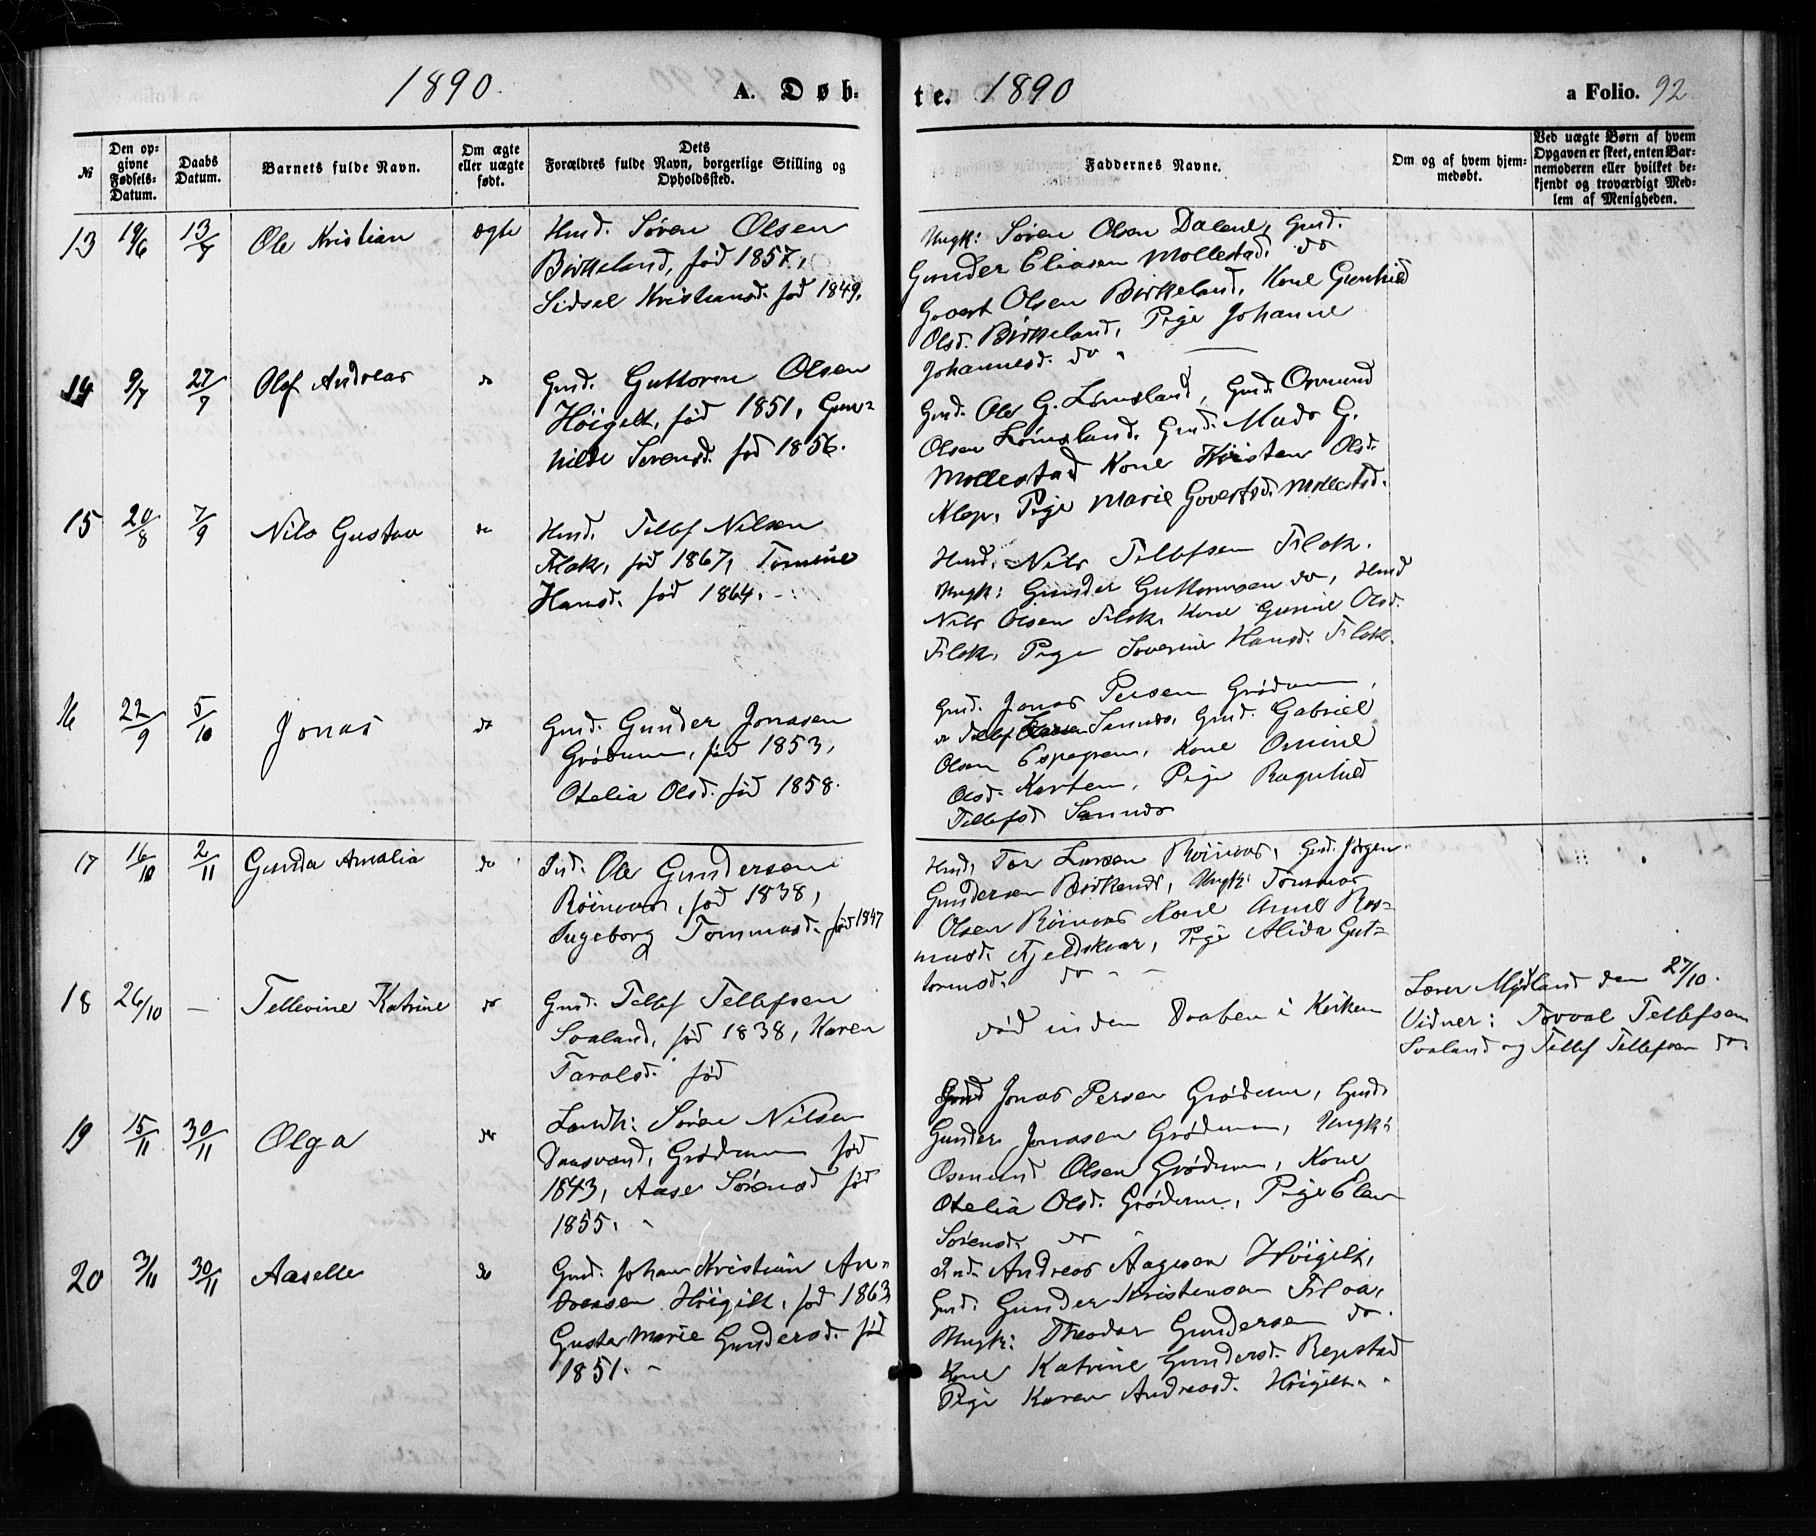 1890.
A. Døb-
te. 1890
a Folio. 92
№
Den op-
givne
Fødsels-
Datum.
Daabs
Datum.
Barnets fulde Navn.
Om ægte
eller uægte
født.
Dets
Forældres fulde Navn, borgerlige Stilling og
Opholdssted.
Faddernes Navne.
Om og af hvem hjem-
medøbt.
Ved uægte Børn af hvem
Opgaven er skeet, enten Bar-
nemoderen eller hvilket be-
kjendt og troværdigt Med-
lem af Menigheden.
13 19/6 13/7 Ole Kristian ægte
Hmd. Søren Olsen
Birkeland, fød 1857,
Sidsel Kristiansd. fød 1849.
Ungk: Søren Olsen Dalene, Gmd.
Gunder Eliasen Mollestad. do
Govert Olsen Birkeland, Kone Gunhild
Olsd. Birkeland, Pige Johanne
Johannesd. do
14 9/7 27/7 Olaf Andreas do
Gmd. Guttorm Olsen
Høigilt, fød 1851, Gun-
hilde Sørensd. fød 1856.
Gmd. Ole G. Lømsland, Gmd. Osmund
Olsen Lømsland, Gmd. Mads G.
Mollestad Kone Kristen Olsd.
Klep, Pige Marie Govertsd. Mollestad.
15 20/8 7/9 Nils Gustav do
Hmd. Tellef Nilsen
Flak, fød 1867, Tomine
Hansd. fød 1864.
Hmd. Nils Tellefsen Flak.
Ungk: Gunder Guttormsen do, Hmd
Nils Olsen Flak, Kone Gunne Olsd.
Flak, Pige Severine Hansd. Flak.
16 22/9 5/10 Jonas do
Gmd. Gunder Jonasen
Grødum, fød 1853,
Otelia Olsd. fød 1858.
Gmd. Jonas Persen Grødum,
Tellef Larsen Sannes, Gmd. Gabriel
Olsen Espegren, Kone Osmine
Olsd. Korten, Pige Ragnhild
Tellefsd Sannes
17 16/10 2/11 Gunda Amalia do
Ind. Ole Gundersen
Røinvas, fød 1838,
Ingeborg Tommasd. fød 1847
Hmd. Tor Larsen Røinvas, Gmd. Jørgen
Gundersen Birkenes, Ungk: Tommas
Olsen Røinvas Kone Anne Ras-
musd. Fjeldskaar, Pige Alida Gut-
tormsd. do
18 26/10 — Tellevine Katrine do
Gmd. Tellef Tellefsen
Svaland, fød 1838, Karen
Taralsd. fød
død inden Daaben i Kirken
Lærer Mydland den 27/10.
Vidner: Torval Tellefsen
Svaland og Tellef Tellefsen do
19 15/11 30/11 Olga do
Landh: Søren Nilsen
Daasvand, Grødum fød
1843, Aase Sørensd fød
1855.
Gmd Jonas Persen Grødum, Gmd.
Gunder Jonasen Grødum, Ungk:
Osmund Olsen Grødum, Kone
Otelia Olsd. Grødum, Pige Elen
Sørensd. do
20 3/11 30/11 Aaselle do
Gmd. Johan Kristian An-
dreasen Høigilt, fød 1863
Gusta Marie Gundersd. fød
1851.
Ind. Andreas Aagesen Høigilt,
Gmd. Gunder Kristensen Flaa,
Ungk: Theodor Gundersen do.
Kone Katrine Gundersd. Repstad
Pige Karen Andreasd. Høigilt.